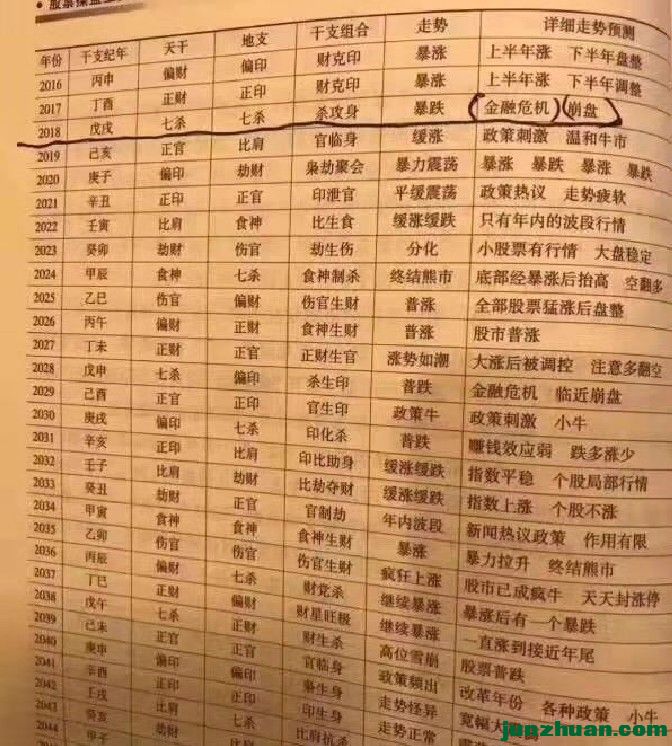 股票操盘
年份 干支纪年 天干 地支 干支组合 走势 详细走势预测
2016 丙申 偏财 偏印 财克印 暴涨 上半年涨 下半年盘整
2017 丁酉 正财 正印 财克印 暴涨 上半年涨 下半年调整
2018 戊戌 七杀 七杀 杀攻身 暴跌 金融危机 崩盘
2019 己亥 正官 比肩 官临身 缓涨 政策刺激 温和牛市
2020 庚子 偏印 劫财 枭劫聚会 暴力震荡 暴涨 暴跌 暴涨 暴跌
2021 辛丑 正印 正官 印泄官 平缓震荡 政策热议 走势疲软
2022 壬寅 比肩 食神 比生食 缓涨缓跌 只有年内的波段行情
2023 癸卯 劫财 伤官 劫生伤 分化 小股票有行情 大盘稳定
2024 甲辰 食神 七杀 食神制杀 终结熊市 底部经暴涨后抬高 空翻多
2025 乙巳 伤官 偏财 伤官生财 普涨 全部股票猛涨后盘整
2026 丙午 偏财 正财 食神生财 普涨 股市普涨
2027 丁未 正财 正官 正财生官 涨势如潮 大涨后被调控 注意多翻空
2028 戊申 七杀 偏印 杀生印 普跌 金融危机 临近崩盘
2029 己酉 正官 正印 官生印 政策牛 政策刺激 小牛
2030 庚戌 偏印 七杀 印化杀 普跌 赚钱效应弱 跌多涨少
2031 辛亥 正印 比肩 印比助身 缓涨缓跌 指数平稳 个股局部行情
2032 壬子 比肩 劫财 比劫夺财 缓涨缓跌 指数上涨 个股不涨
2033 癸丑 劫财 正官 官制劫 年内波段 新闻热议政策 作用有限
2034 甲寅 食神 食神 食神生财 暴涨 暴力拉升 终结熊市
2035 乙卯 伤官 伤官 伤官生财 疯狂上涨 股市已成疯牛 天天封涨停
2036 丙辰 偏财 七杀 财党杀 继续暴涨 暴涨后有一个暴跌
2037 丁巳 正财 偏财 财星旺极 继续暴涨 一直涨到接近年尾
2038 戊午 七杀 正财 财生杀 高位雪崩 股票普跌
2039 己未 正官 正官 官临身 政策频出 改革年份 各种政策 小牛
2040 庚申 偏印 偏印 枭生身 走势怪异 宽幅大
2041 辛酉 正印 正印 印生身 走势正常
2042 壬戌 比肩 七杀 比肩抗杀
2043 癸亥 劫财 比肩
2044 甲子
junzhuan.com